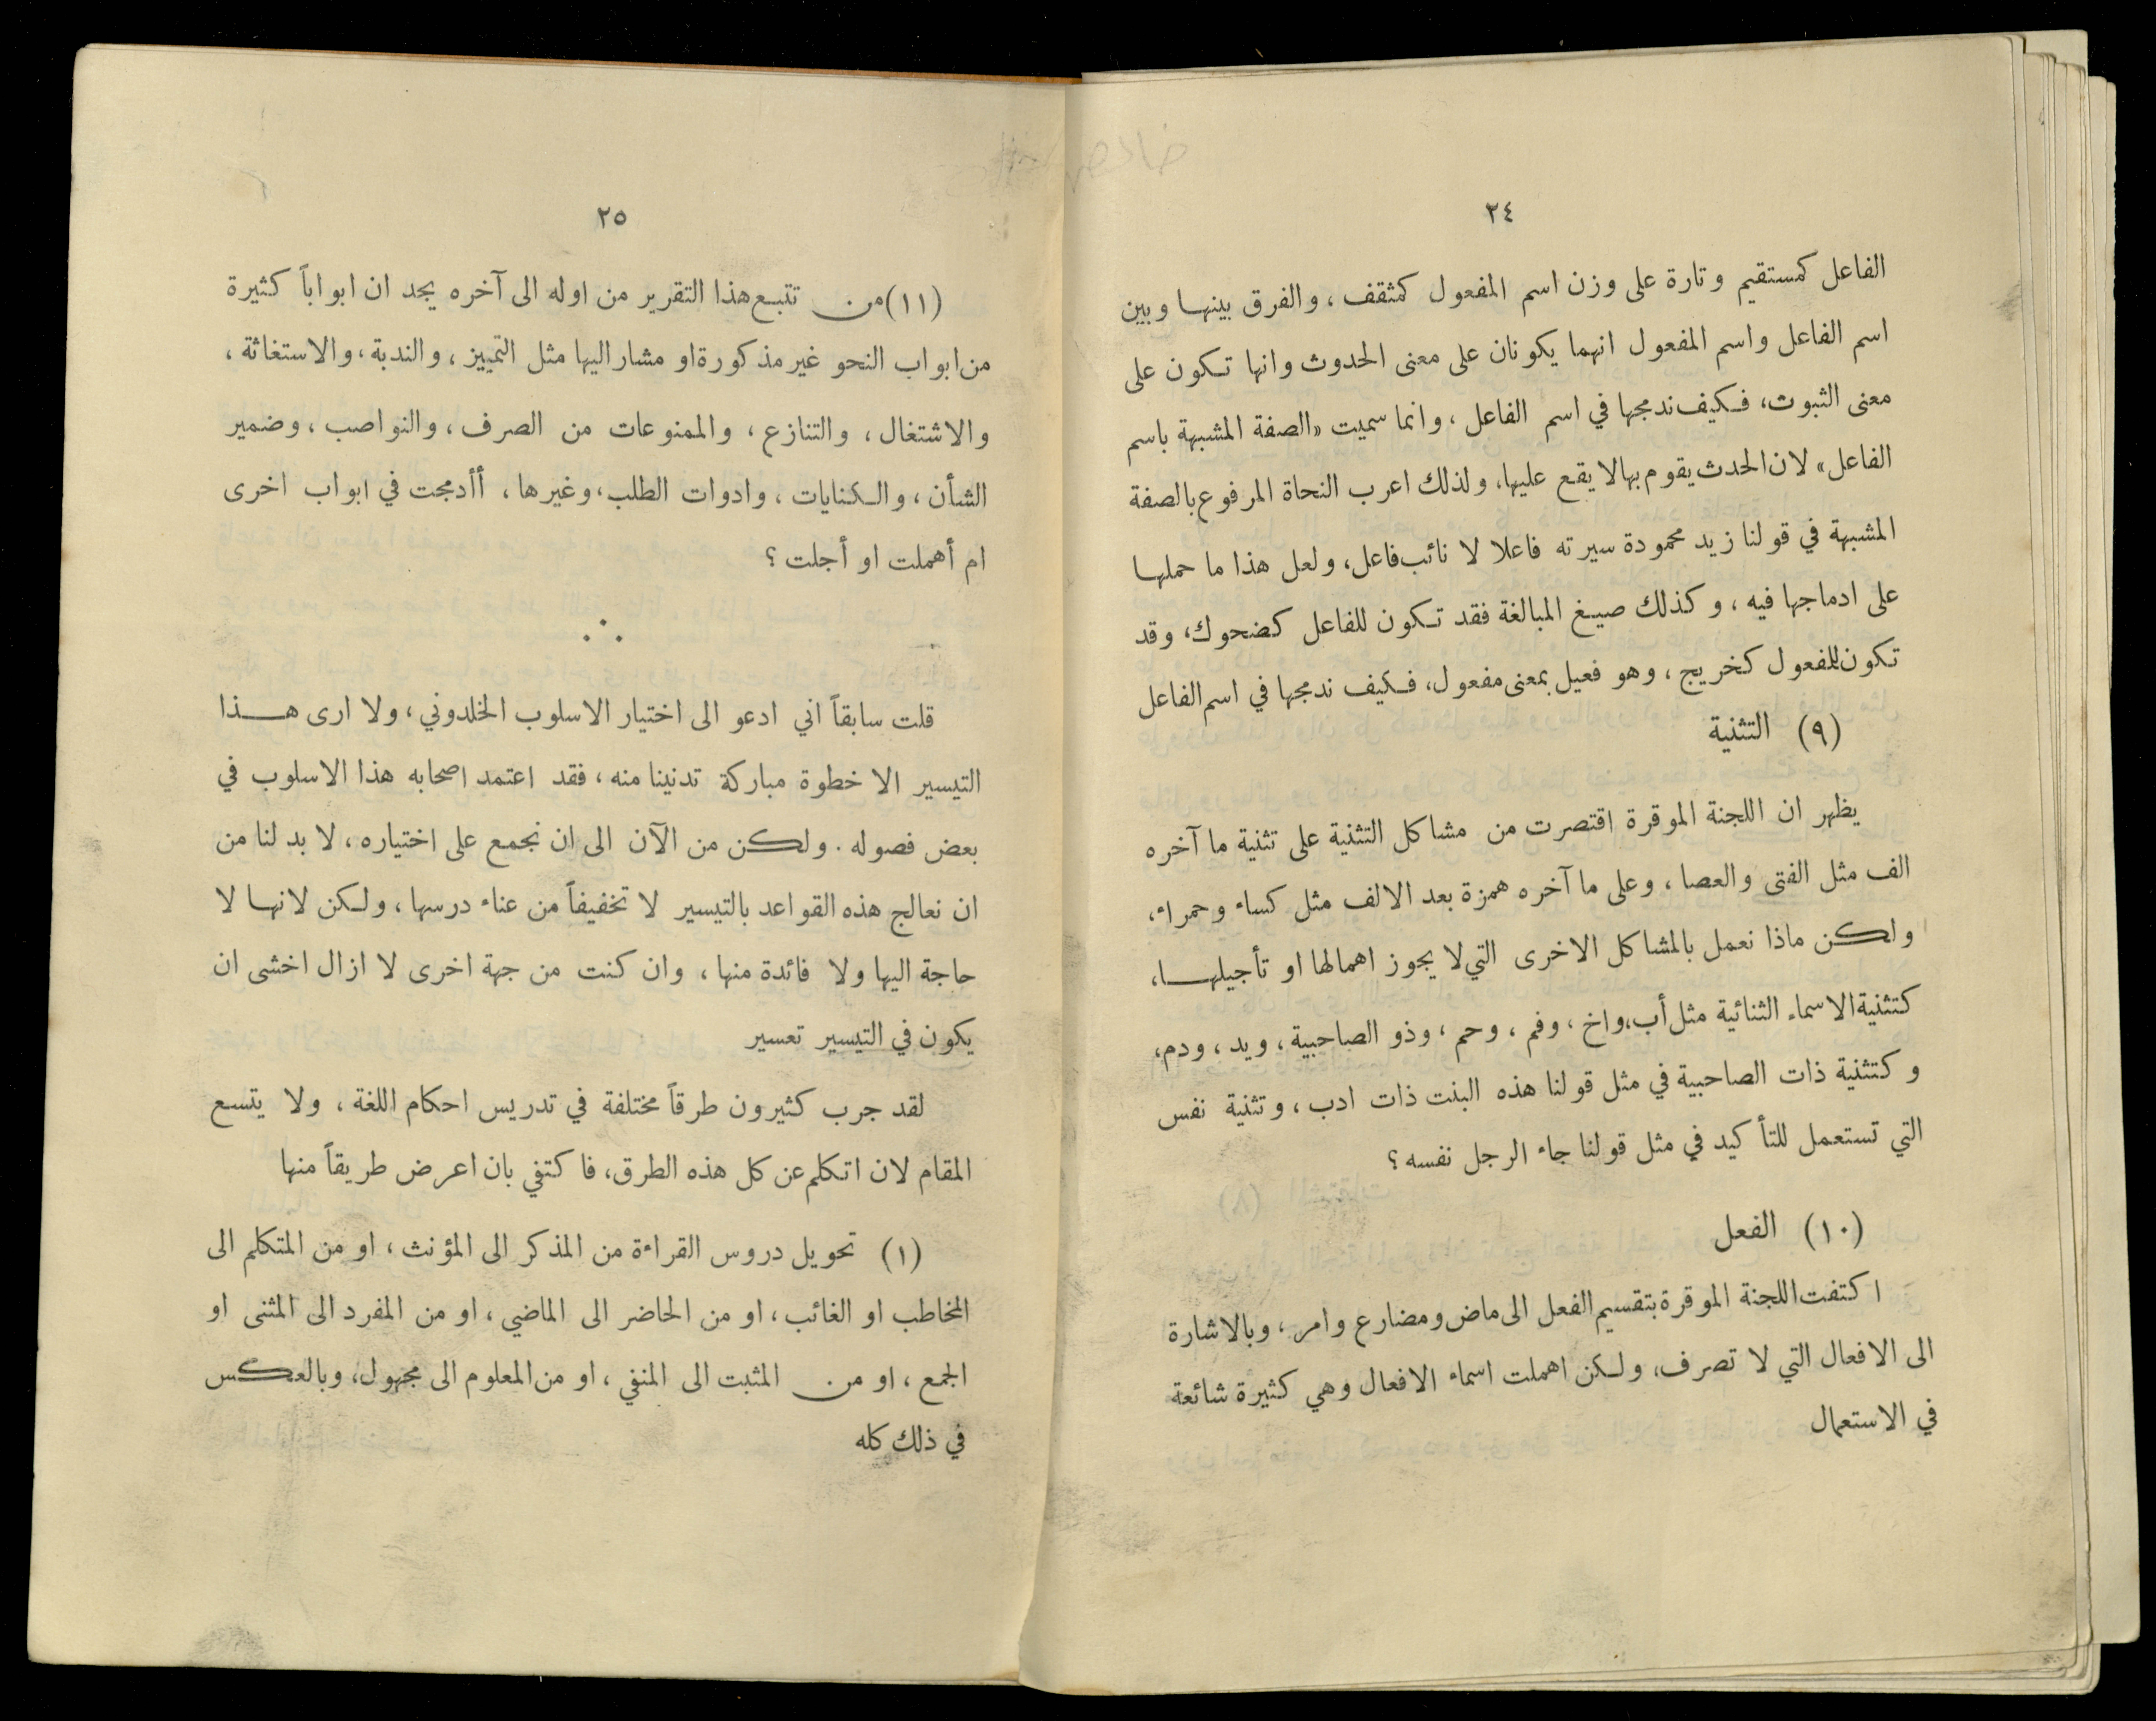 ٢٤
الفاعل كمستقيم وتارة على وزن اسم المفعول كمثقف ، والفرق بينها وبين
اسم الفاعل واسم المفعول انهما يكونان على معنى الحدوث وانها تكون على
معنى الثبوت، فكيف ندمجها في اسم الفاعل ، وانما سميت «الصفة المشبهة باسم
الفاعل» لان الحدث يقوم بها لا يقع عليها، ولذلك اعرب النحاة المرفوع بالصفة
المشبهة في قولنا زيد محمودة سيرته فاعلا لا نائب فاعل، ولعل هذا ما حملها
على ادماجها فيه ، وكذلك صيغ المبالغة فقد تكون للفاعل كضحوك، وقد
تكون للمفعول كخريج ، وهو فعيل بمعنى مفعول، فكيف ندمجها في اسم الفاعل
(٩) التثنية
يظهر ان اللجنة الموقرة اقتصرت من مشاكل التثنية على تثنية ما آخره
الف مثل الفتى والعصا ، وعلى ما آخره همزة بعد الالف مثل كساء وحمراء،
ولكن ماذا نعمل بالمشاكل الاخرى التي لا يجوز اهمالها او تأجيلها،
كتثنية الاسماء الثنائية مثل أب، واخ ، وفم ، وحم ، وذو الصاحبية ، ويد ، ودم،
وكتثنية ذات الصاحبية في مثل قولنا هذه البنت ذات ادب ، وتثنية نفس
التي تستعمل للتأكيد في مثل قولنا جاء الرجل نفسه ؟
(١٠) الفعل
اكتفت اللجنة الموقرة بتقسيم الفعل الى ماض ومضارع وامر ، وبالاشارة
الى الافعال التي لا تصرف، ولكن اهملت اسماء الافعال وهي كثيرة شائعة
في الاستعمال
٢٥
(١١) من تتبع هذا التقرير من اوله الى آخره يجد ان ابواباً كثيرة
من ابواب النحو غير مذكورة او مشار اليها مثل التمييز ، والندبة ، والاستغاثة ،
والاشتغال ، والتنازع ، والممنوعات من الصرف ، والنواصب ، وضمير
الشأن ، والكنايات ، وادوات الطلب، وغيرها ، أأدمجت في ابواب اخرى
ام أهملت او أجلت ؟
قلت سابقاً اني ادعو الى اختيار الاسلوب الخلدوني ، ولا ارى هذا
التيسير الا خطوة مباركة تدنينا منه ، فقد اعتمد اصحابه هذا الاسلوب في
بعض فصوله . ولكن من الآن الى ان نجمع على اختياره ، لا بد لنا من
ان نعالج هذه القواعد بالتيسير لا تخفيفاً من عناء درسها ، ولكن لانها لا
حاجة اليها ولا فائدة منها ، وان كنت من جهة اخرى لا ازال اخشى ان
يكون في التيسير تعسير
لقد جرب كثيرون طرقاً مختلفة في تدريس احكام اللغة ، ولا يتسع
المقام لان اتكلم عن كل هذه الطرق، فاكتفي بان اعرض طريقاً منها
(١) تحويل دروس القراءة من المذكر الى المؤنث ، او من المتكلم الى
المخاطب او الغائب ، او من الحاضر الى الماضي ، او من المفرد الى المثنى او
الجمع ، او من المثبت الى المنفي ، او من المعلوم الى مجهول، وبالعكس
في ذلك كله